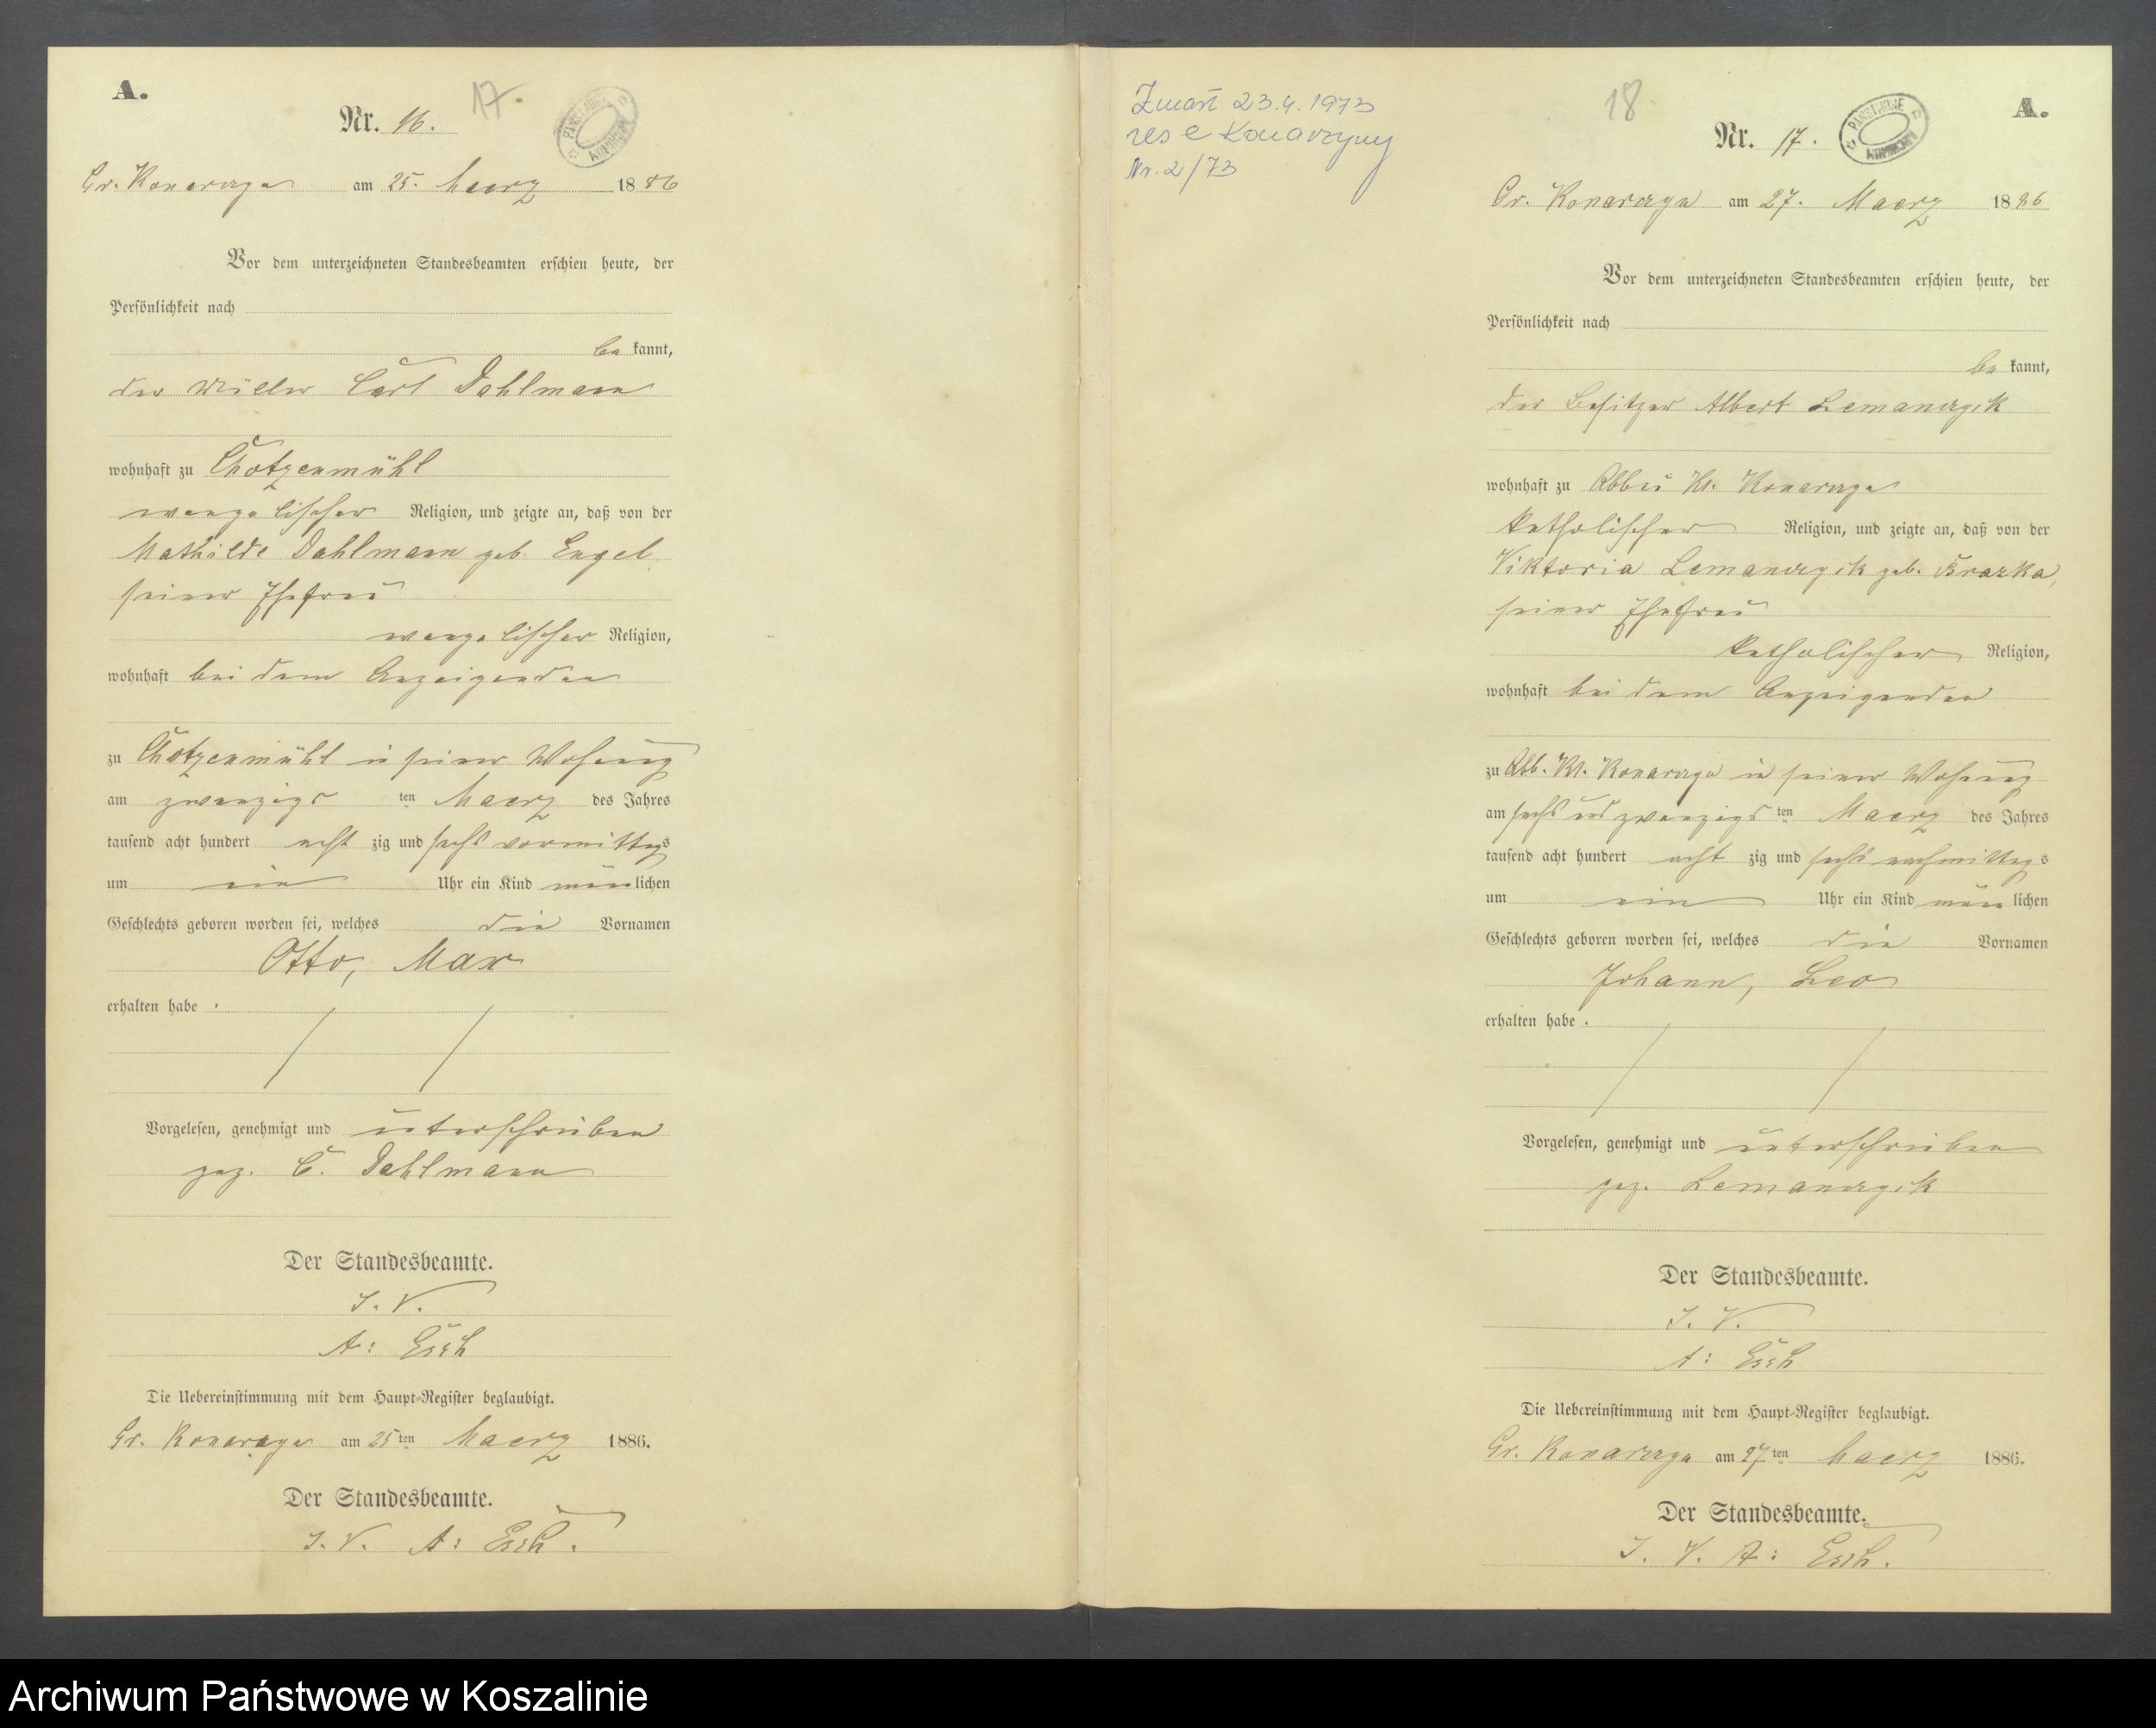 A.
17.
Nr. 16.
Gr. Konarczyn am 25. Maerz 1886
Vor dem unterzeichneten Standesbeamten erschien heute, der
Persönlichkeit nach
be kannt,
der Müller Carl Dahlmann
wohnhaft zu Chotzenmühl
evangelischer Religion, und zeigte an, daß von der
Mathilde Dahlmann geb. Engel,
seiner Ehefrau
evangelischer Religion,
wohnhaft bei dem Anzeigenden
zu Chotzenmühl in seiner Wohnung
am zwanzigs ten Maerz des Jahres
tausend acht hundert acht zig und sechs vormittags
um ein Uhr ein Kind männlichen
Geschlechts geboren worden sei, welches die Vornamen
Otto, Max
erhalten habe .
Vorgelesen, genehmigt und unterschrieben
gez. C. Dahlmann
Der Standesbeamte.
I. V.
A: Esch
Die Uebereinstimmung mit dem Haupt-Register beglaubigt.
Gr. Konarczyn am 25ten Maerz 1886.
Der Standesbeamte.
I. V. A: Esch.
Zmarł 23.4.1973
Konarzyny
Nr. 2/73
18
A.
Nr. 17.
Gr. Konarczyn am 27. Maerz 1886
Vor dem unterzeichneten Standesbeamten erschien heute, der
Persönlichkeit nach
be kannt,
der Besitzer Albert Lemanczyk
wohnhaft zu Abbau Kl. Konarczyn
katholischer Religion, und zeigte an, daß von der
Viktoria Lemanczyk geb. Brazka,
seiner Ehefrau
katholischer Religion,
wohnhaft bei dem Anzeigenden
zu Abb. Kl. Konarczyn in seiner Wohnung
am sechs und zwanzigs ten Maerz des Jahres
tausend acht hundert acht zig und sechs nachmittags
um ein Uhr ein Kind männlichen
Geschlechts geboren worden sei, welches die Vornamen
Johann, Leo
erhalten habe .
Vorgelesen, genehmigt und unterschrieben
gez. Lemanczyk
Der Standesbeamte.
I. V.
A: Esch
Die Uebereinstimmung mit dem Haupt-Register beglaubigt.
Gr. Konarczyn am 27ten Maerz 1886.
Der Standesbeamte.
I. V. A: Esch.
Archiwum Państwowe w Koszalinie